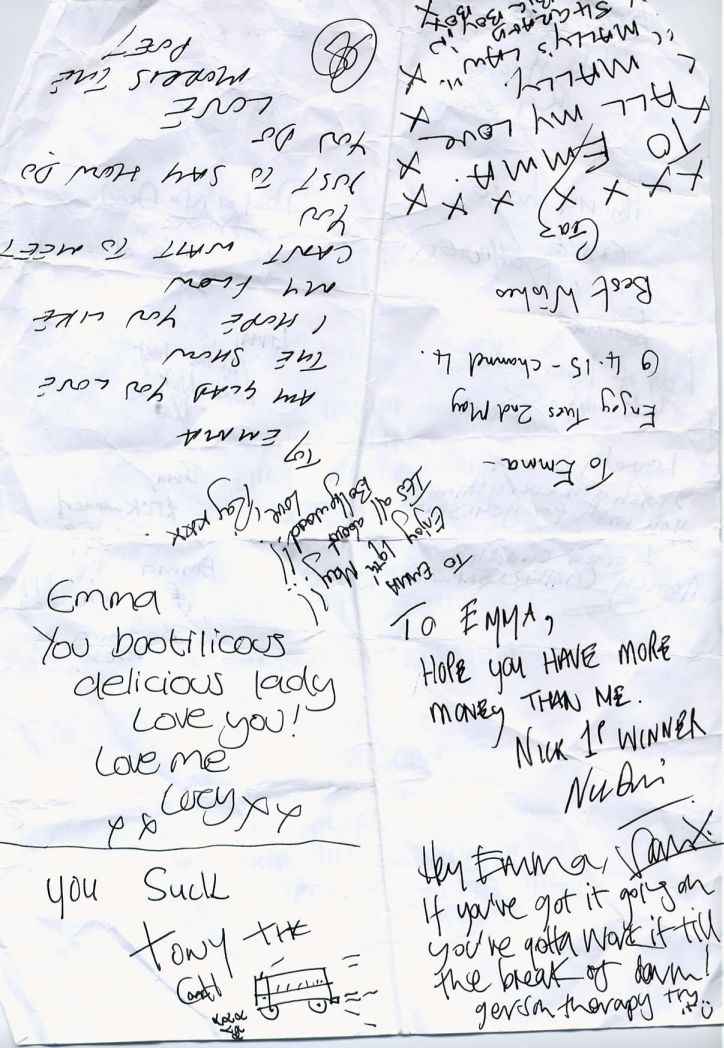 TO EMMA
AM GLAD YOU LOVE
THE SHOW
I HOPE YOU LIKE
MY FLOW
CANT WAIT TO MEET
YOU
JUST TO SAY HOW DO
YOU DO
LOVE
MORRIS THE
POET
To Emma -
Enjoy Tues 2nd May
@ 4.15 - channel 4.
Best Wishes
Gaz
TO EMMA.
ALL MY LOVE
WALLY.
To Emma
Enjoy 19th May
It's all about
Bollywood!!!
Love, Ray xxx
Emma
You bootilicous
delicious lady
Love you!
Love me
Lucy x x
x x
TO EMMA,
HOPE YOU HAVE MORE
MONEY THAN ME.
NICK 1P WINNER
you Suck
TONY THE
Hey Emma,
If you've got it going on
you've gotta work it till
the break of dawn!
gerson therapy try it